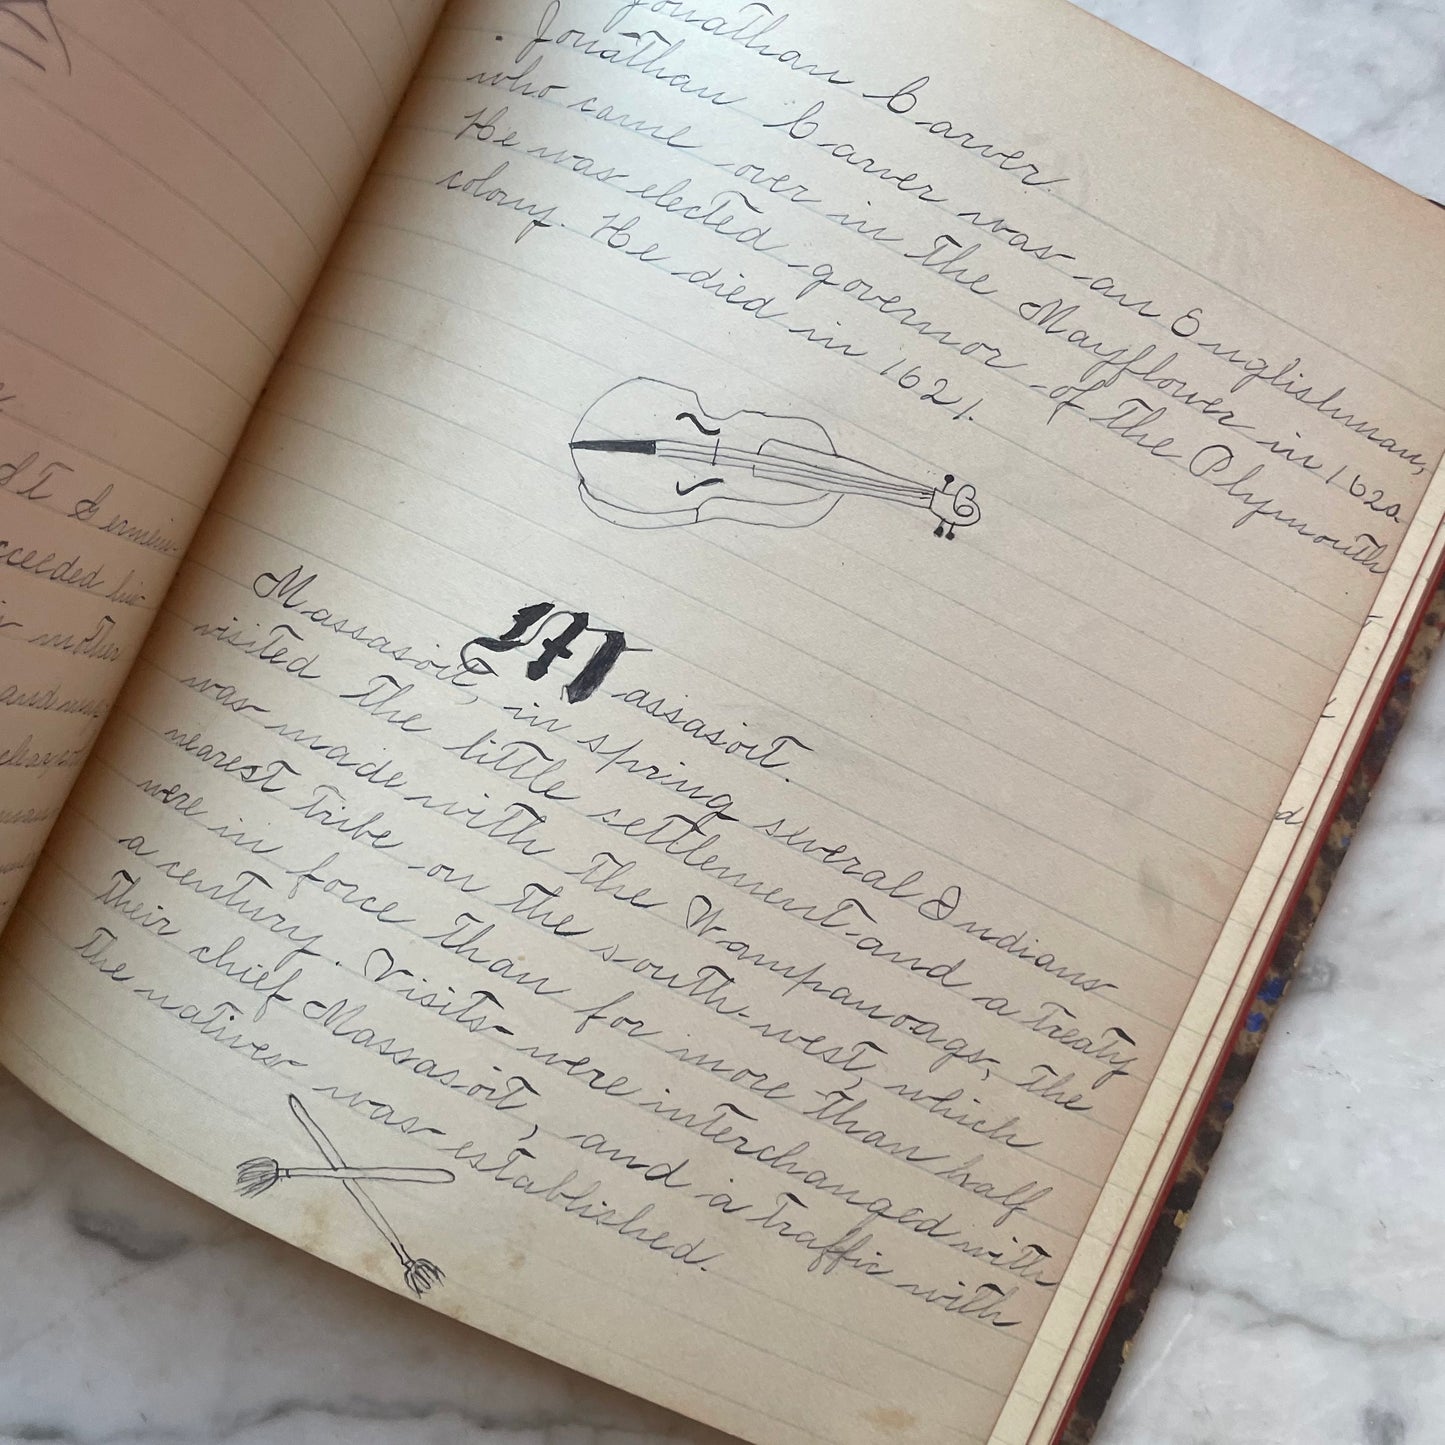 Jonathan Carver.
Jonathan Carver was an Englishman,
who came over in the Mayflower in 1620
He was elected governor of the Plymouth
colony. He died in 1621.
Massasoit.
Massasoit, in spring several Indians
visited the little settlement and a treaty
was made with the Wampanoags, the
nearest tribe on the south-west, which
were in force than for more than half
a century. Visits were interchanged with
their chief Massasoit, and a traffic with
the natives was established.
St Germain
cceeded his
mother
and
d